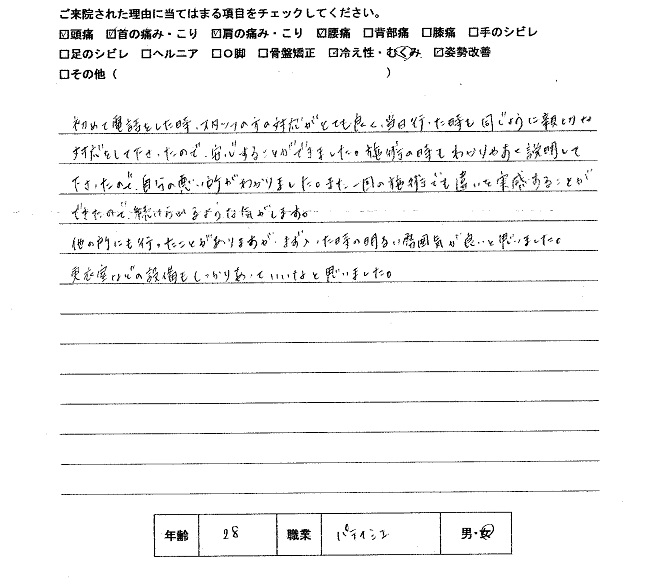 ご来院された理由に当てはまる項目をチェックしてください。
☑頭痛 ☑首の痛み・こり ☑肩の痛み・こり ☑腰痛 □背部痛 □膝痛 □手のシビレ
□足のシビレ □ヘルニア □O脚 □骨盤矯正 ☑冷え性・むくみ ☑姿勢改善
□その他（　　　　　）
初めて電話をした時、スタッフの方の対応がとても良く、当日行った時も同じように親切な
対応をして下さったので、安心することができました。施術の時もわかりやすく説明して
下さったので、自分の悪い所がわかりました。また、一回の施術でも違いを実感することが
できたので、続けられるような気がします。
他の所にも行ったことがありますが、まず入った時の明るい雰囲気が良いと思いました。
更衣室などの設備もしっかりあっていいなと思いました。
年齢 28 職業 パティシエ 男・女